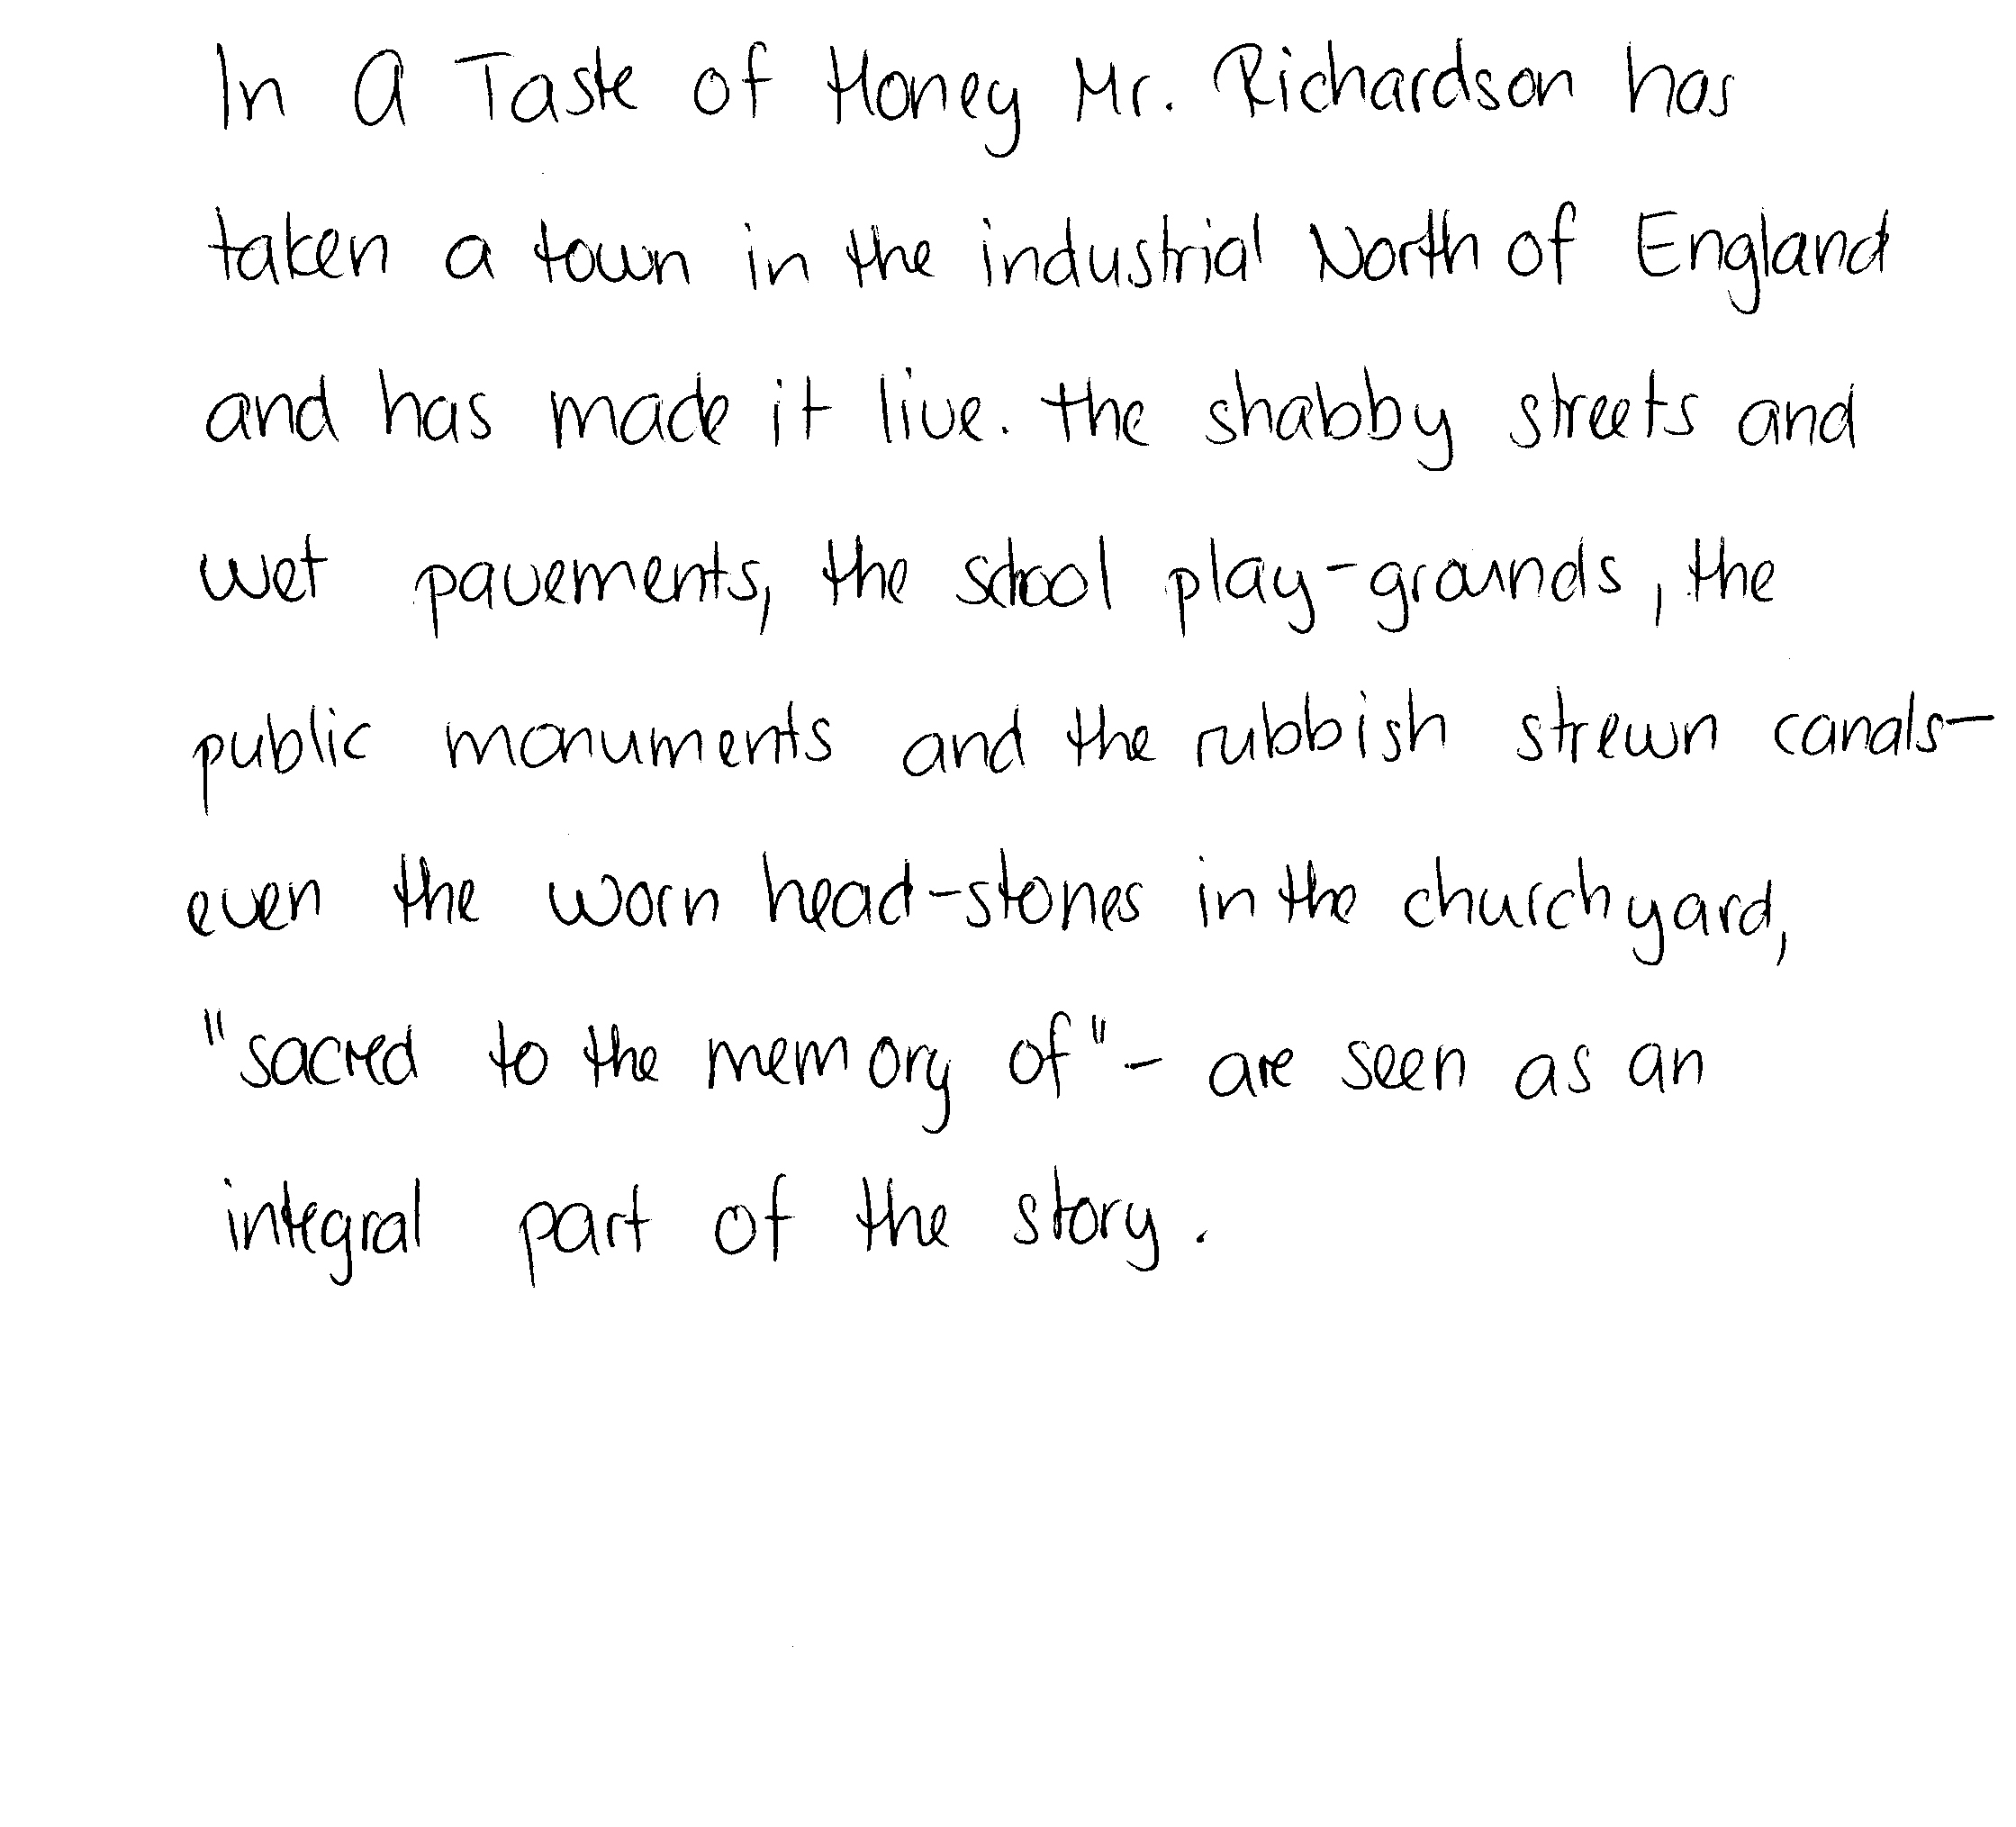 In A Taste of Honey Mr. Richardson has
taken a town in the industrial North of England
and has made it live. the shabby streets and
wet pavements, the school play-grounds, the
public monuments and the rubbish strewn canals-
even the worn head-stones in the churchyard,
"sacred to the memory of" - are seen as an
integral part of the story.